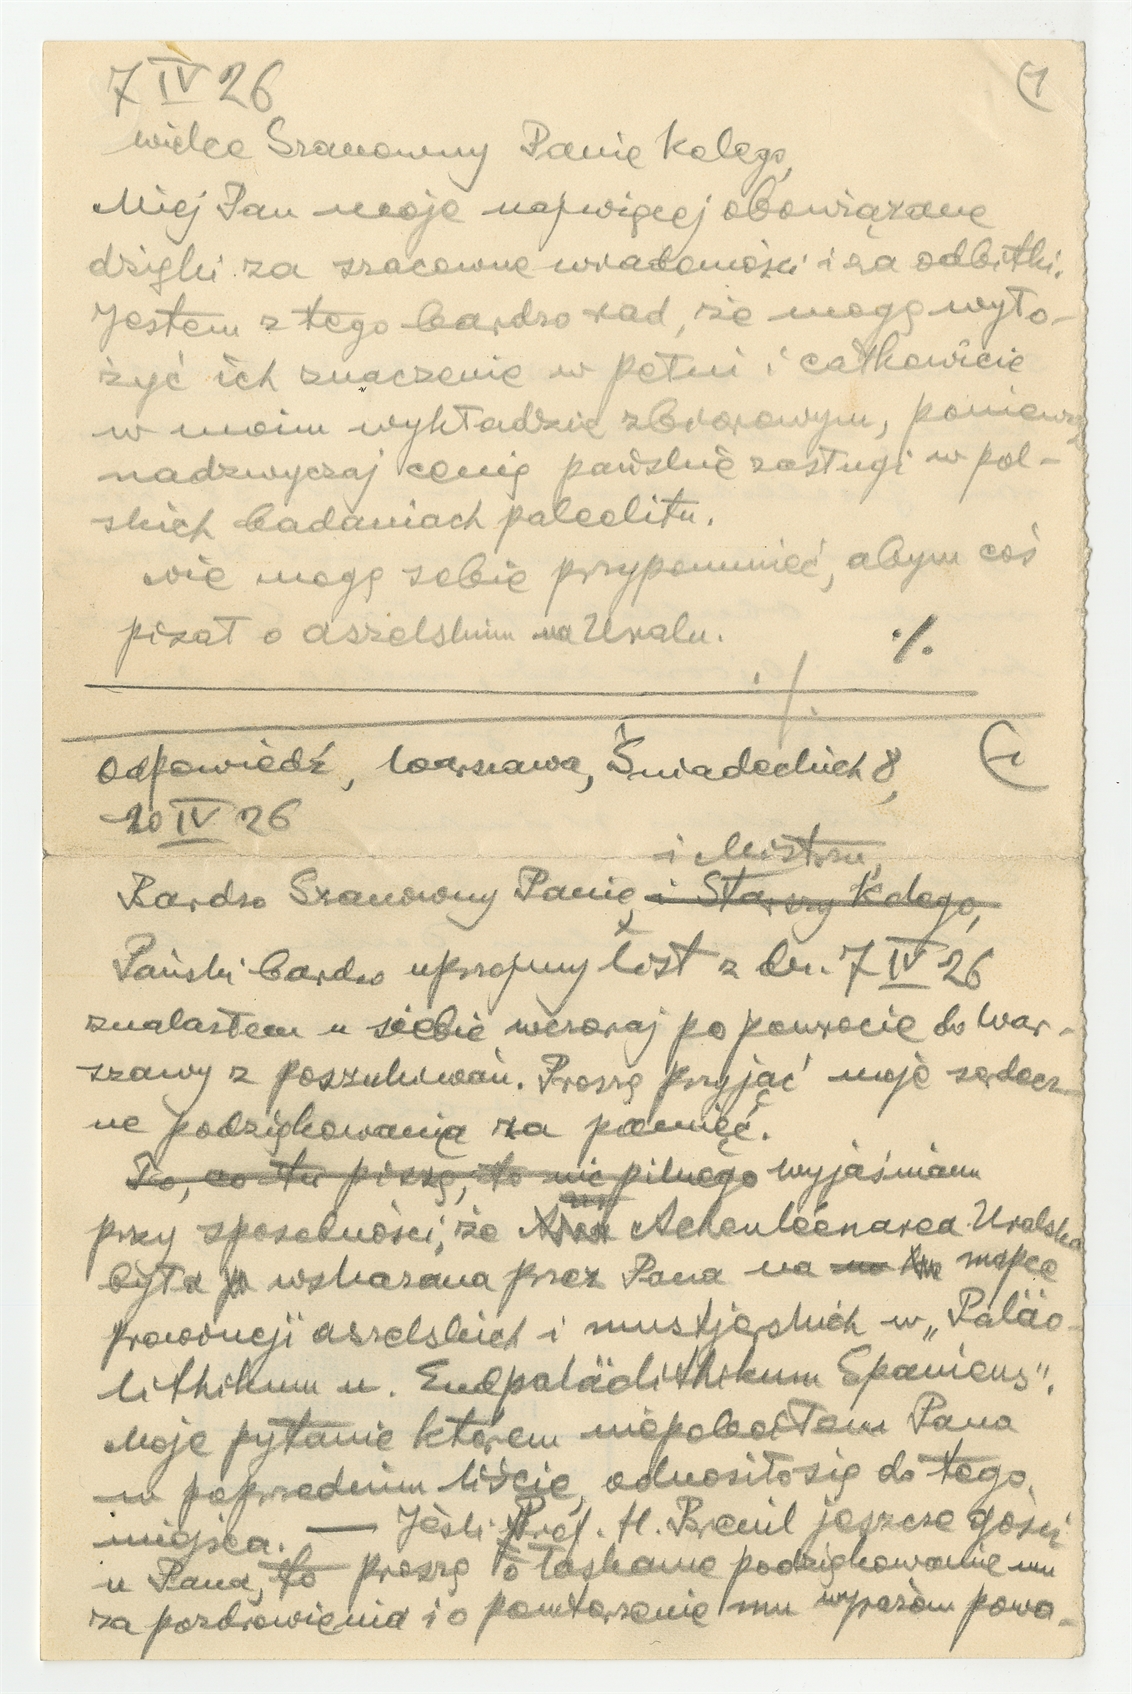 7 IV 26
1
Wielce Szanowny Panie Kolego,
Miej Pan moje najwięcej obowiązane
dzięki za szacowne wiadomości i za odbitki.
Jestem z tego bardzo rad, że mogę wyło-
żyć ich znaczenie w pełni i całkowicie
w moim wykładzie zbiorowym, ponieważ
nadzwyczaj cenię pańskie zasługi w pol-
skich badaniach paleolitu.
Nie mogę sobie przypomnieć, abym coś
pisał o aszelskim na Uralu.
./.
./.
Odpowiedź, Warszawa, Śniadeckich 8,
1
20 IV 26
i Mistrzu,
Bardzo Szanowny Panie, i Starszy Kolego,
Pański bardzo uprzejmy list z dn. 7 IV 26
znalazłem u siebie wczoraj po powrocie do War-
szawy z poszukiwań. Proszę przyjąć moje serdecz-
ne podziękowania za pamięć.
To, co tu piszę, to nic pilnego wyjaśniam
przy sposobności, że Acheuléenarea Uralska
była wskazana przez Pana na mapce
prowincji aszelskich i mustjerskich w „Paläo-
lithikum u. Endpaläolithikum Spaniens".
Moje pytanie którem niepokoiłem Pana
w poprzednim liście, odnosiło się do tego
miejsca. — Jeśli Prof. H. Breuil jeszcze gości
u Pana, to proszę o łaskawe podziękowanie mu
za pozdrowienia i o powtórzenie mu wyrazów powa-